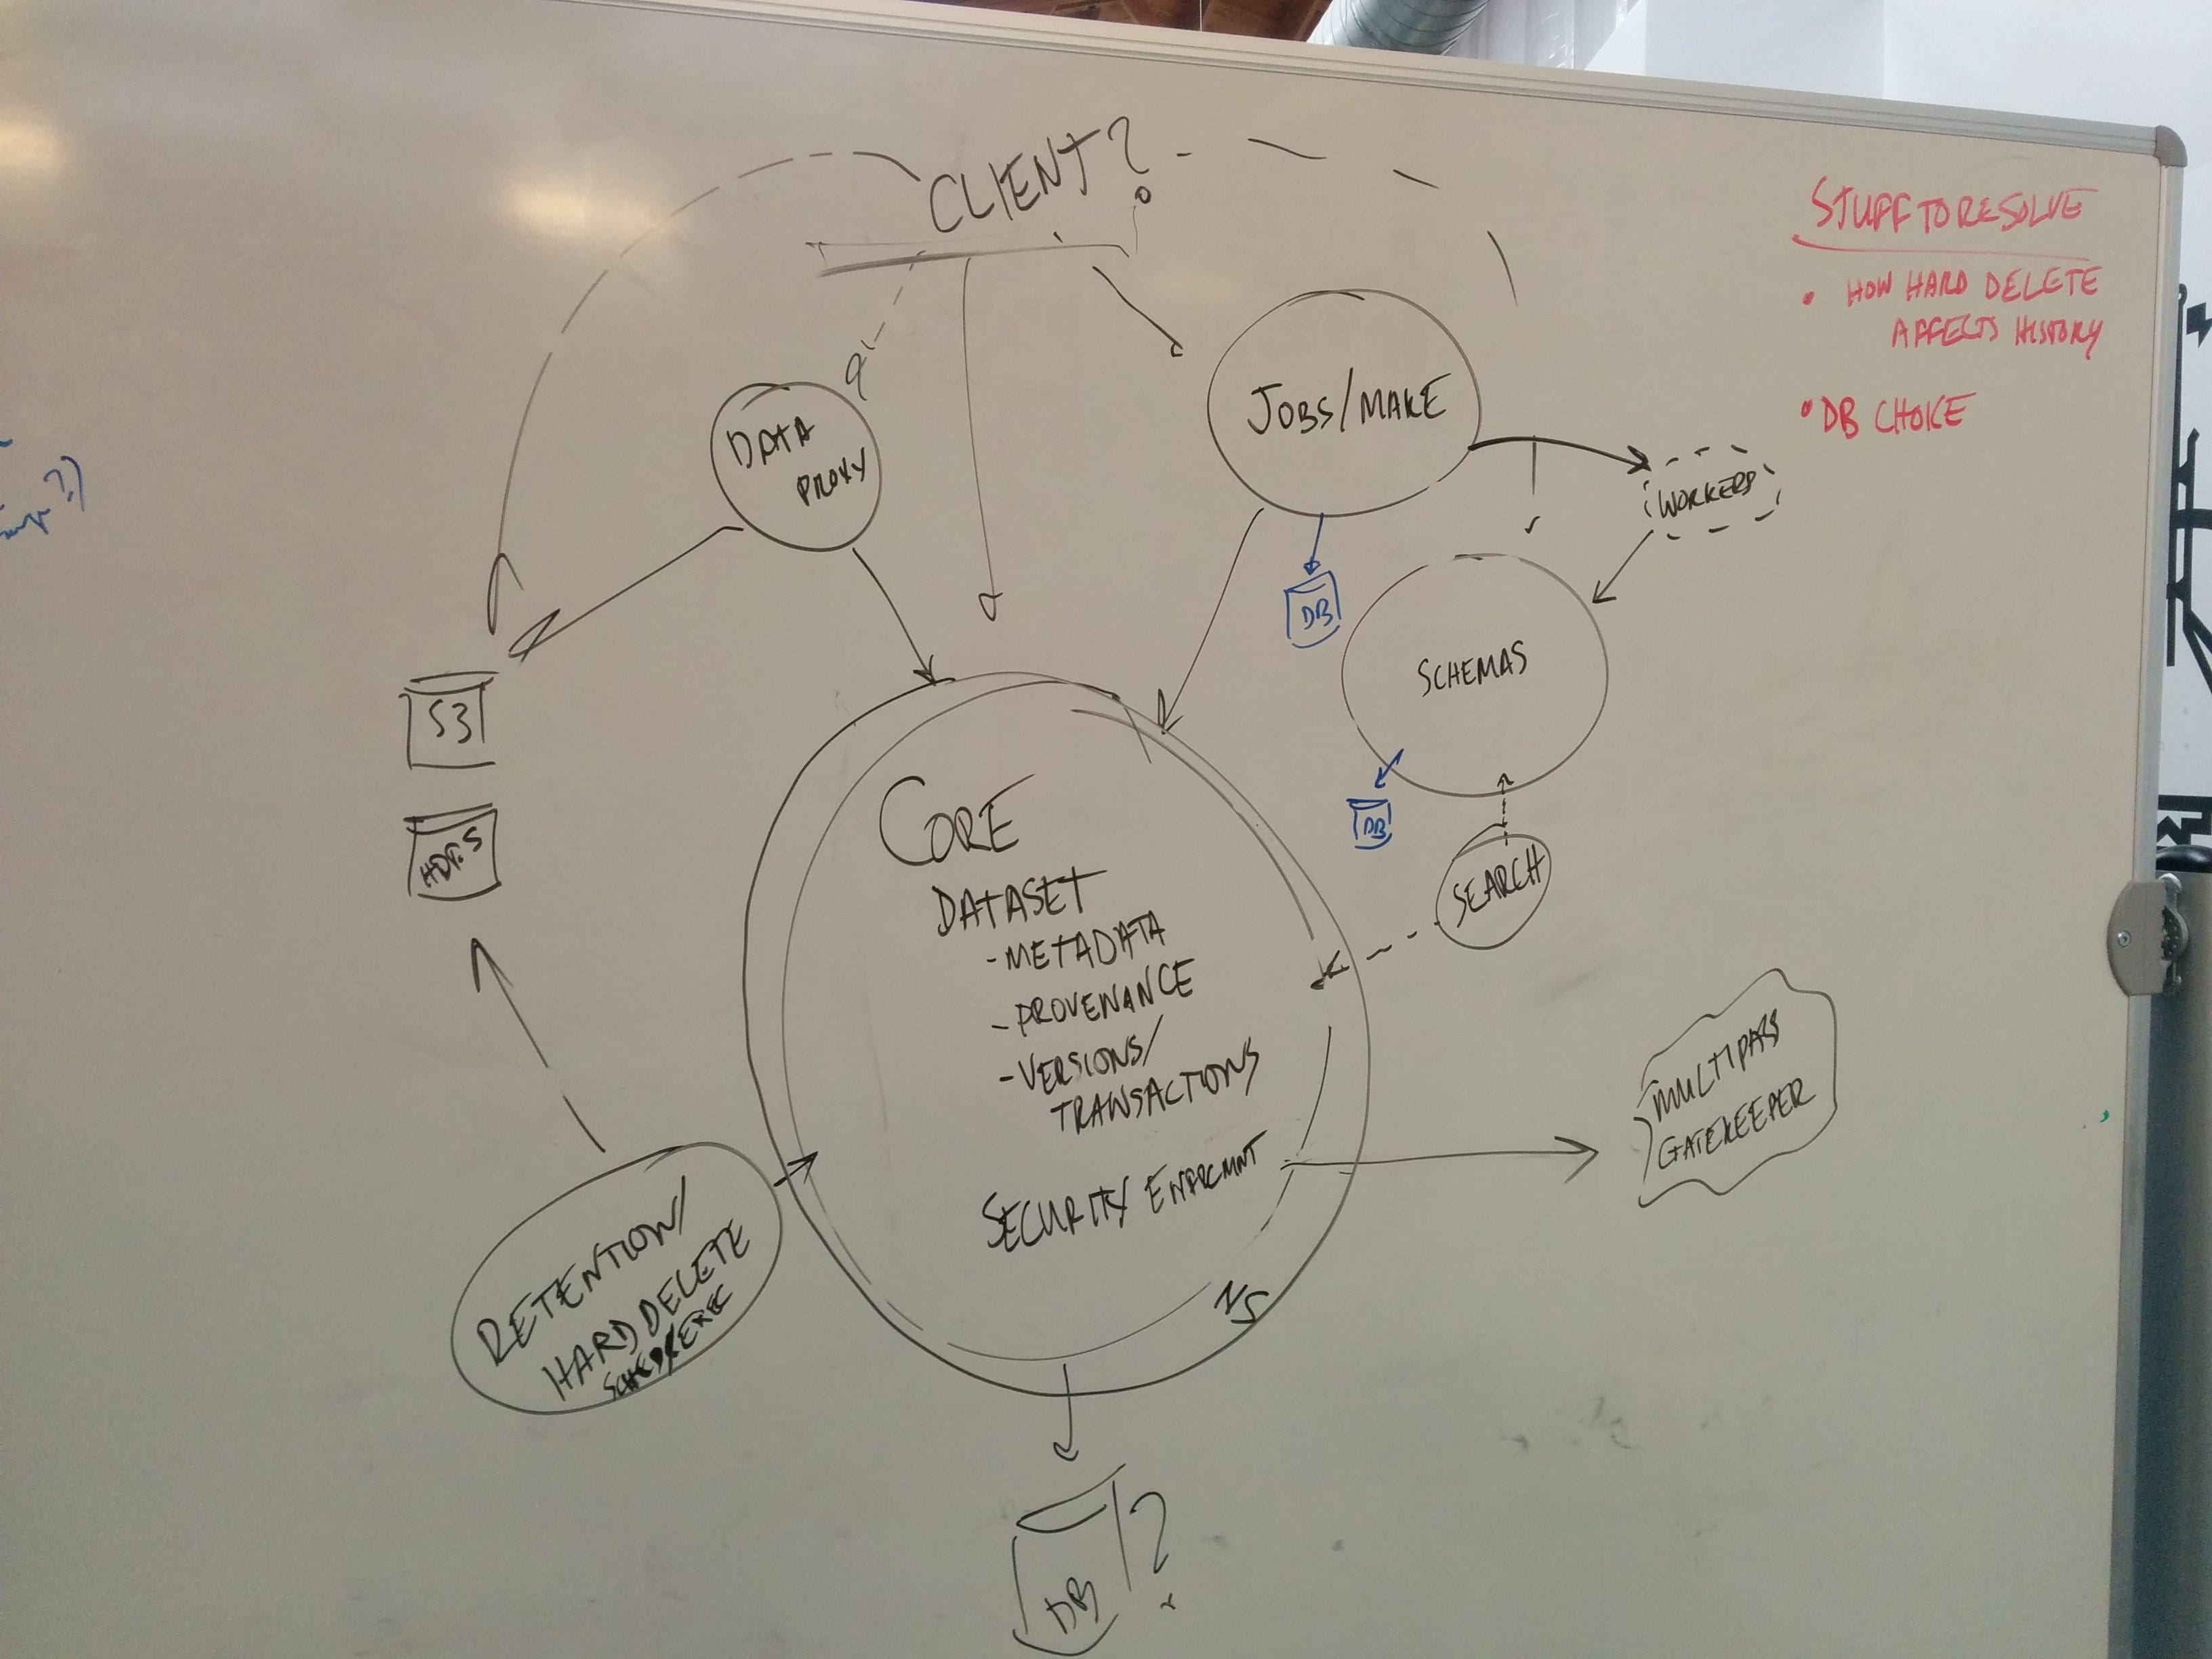 CLIENT?
STUFF TO RESOLVE
• HOW HARD DELETE
AFFECTS HISTORY
• DB CHOICE
JOBS/MAKE
DATA
PROXY
WORKERS
DB
SCHEMAS
S3
DB
HDFS
SEARCH
CORE
DATASET
- METADATA
- PROVENANCE
- VERSIONS/
TRANSACTIONS
SECURITY ENFRCMNT
MULTIPASS
GATEKEEPER
RETENTION/
HARD DELETE
SCHED/EXEC
DB?
?)